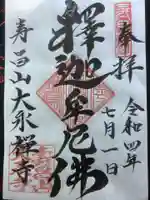 奉拝
令和四年
七月一日
釋迦牟尼佛
寿昌山大永禅寺